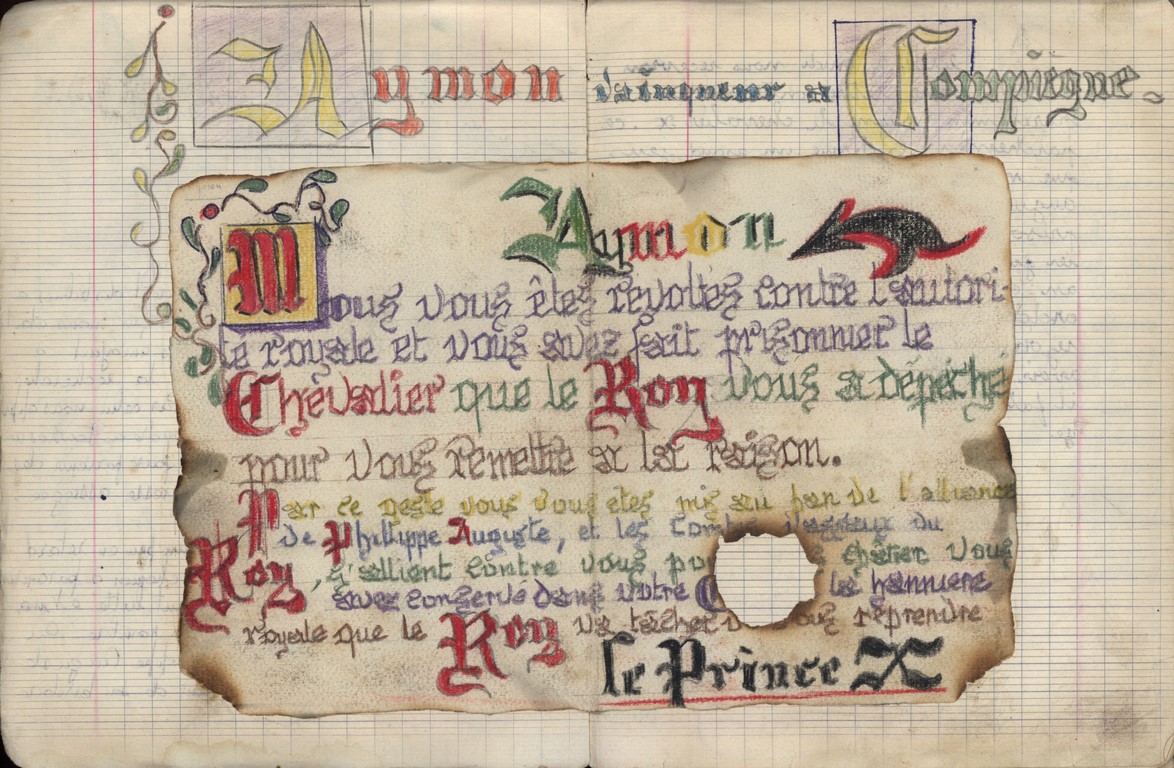 Aymon vainqueur à Compiègne.
Aymon
Mous vous êtes révoltés contre l'autori-
té royale et vous avez fait prisonnier le
Chevalier que le Roy vous a dépéché
pour vous remettre à la raison.
Par ce geste vous vous etes mis au ban de l'alliance
de Philippe Auguste, et les Comtes vasseux du
Roy, s'allient contre vous po chatier Vous
avez conservé dans votre C la bannière
royale que le Roy va tacher vous reprendre
le Prince X